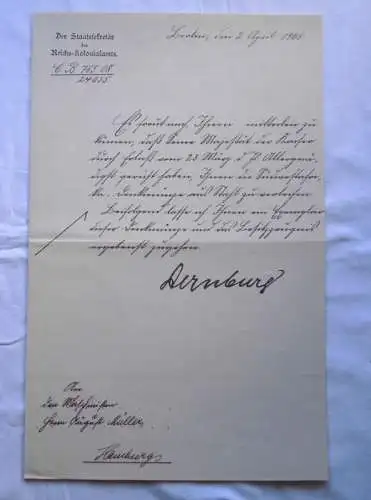 Der Staatssekretär
des
Reichs-Kolonialamts.
Berlin, den 2. April 1908
C B 765 08
24635
Es freut mich Ihnen mitteilen zu
können, daß Seine Majestät der Kaiser
durch Erlaß vom 23. März d. Js. Allergnä-
digst geruht haben, Ihnen die Südwestafri-
ka-Denkmünze aus Stahl zu verleihen.
Beifolgend lasse ich Ihnen ein Exemplar
dieser Denkmünze und das Besitzzeugnis
ergebenst zugehen.
Dernburg
An
den
Herrn August Müller
Hamburg